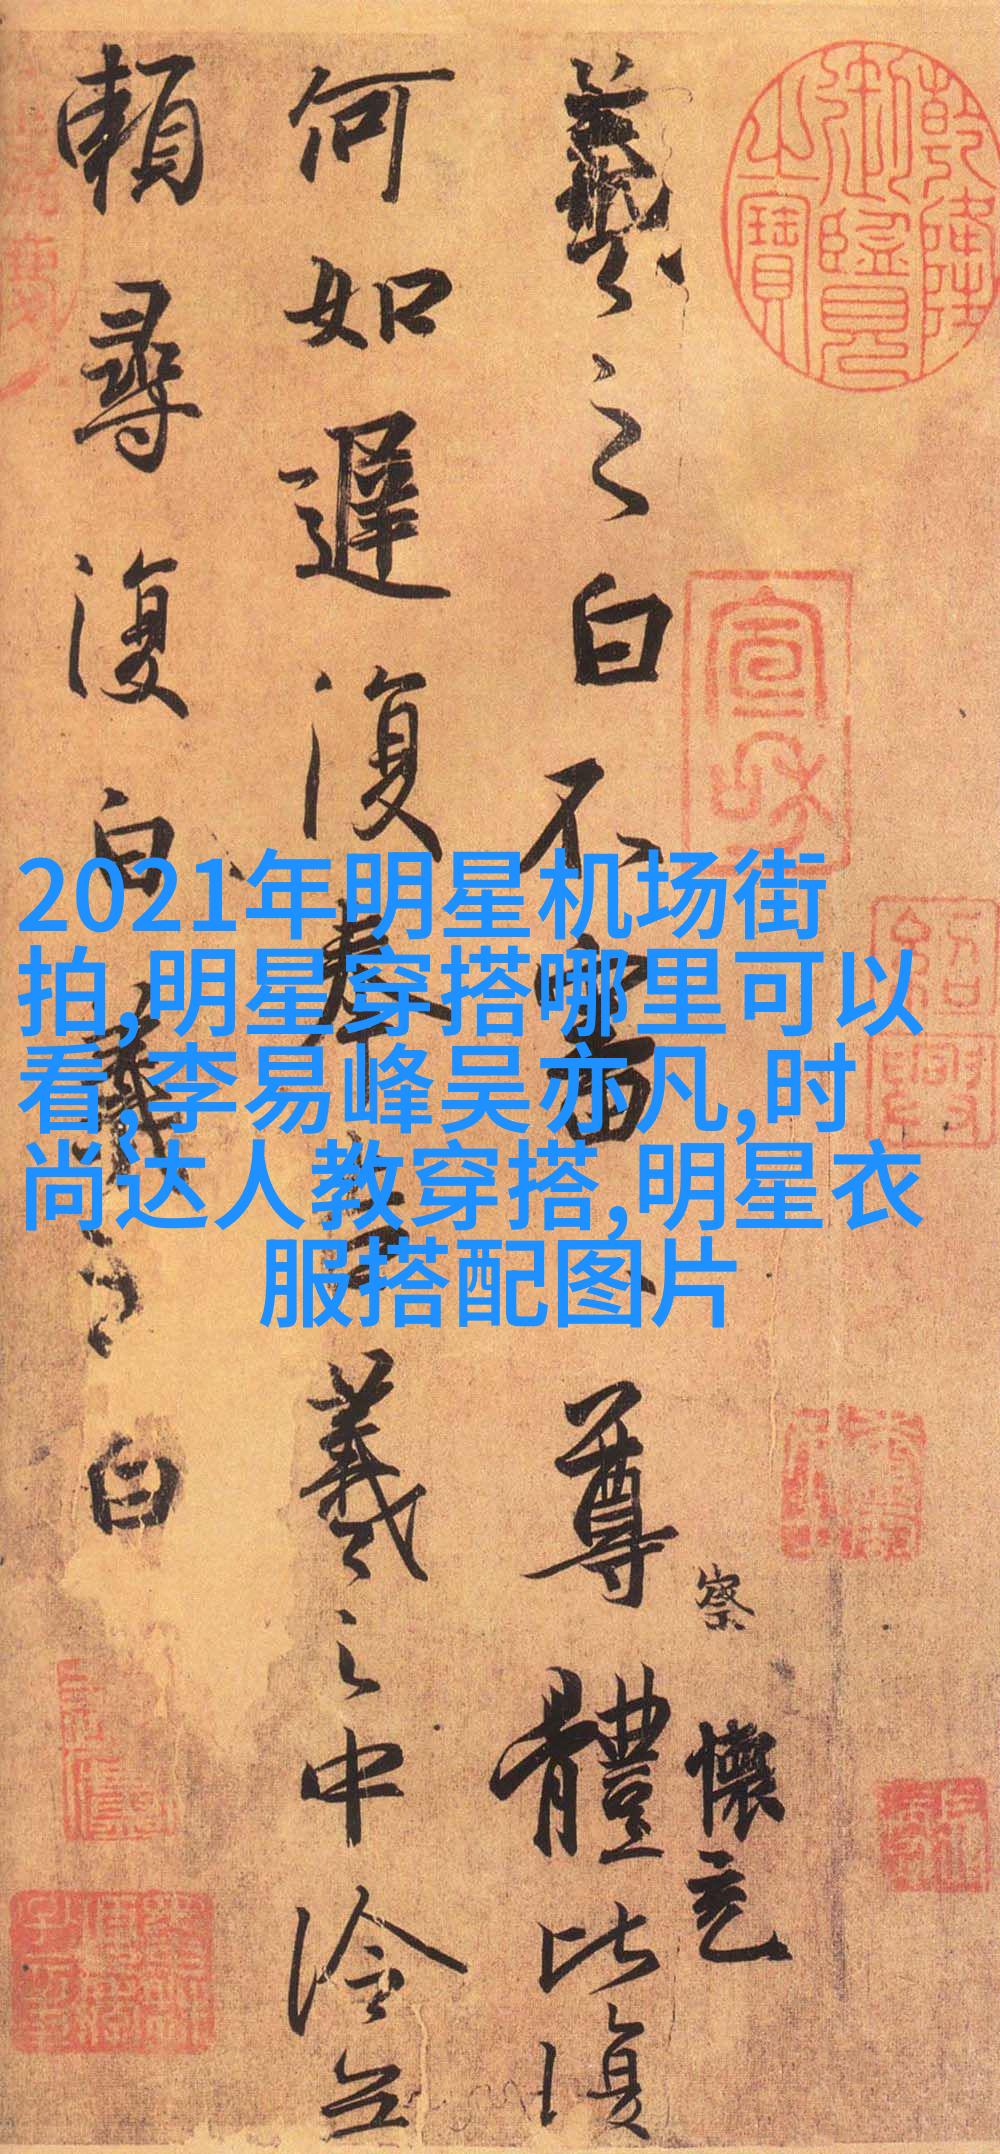 羲之白不審尊體比復
何如遲復奉告羲之中冷無
賴尋復白羲之白
察
懷充
乾隆御覽之寶
2021年明星机场街
拍,明星穿搭哪里可以
看,李易峰吴亦凡,时
尚达人教穿搭,明星衣
服搭配图片